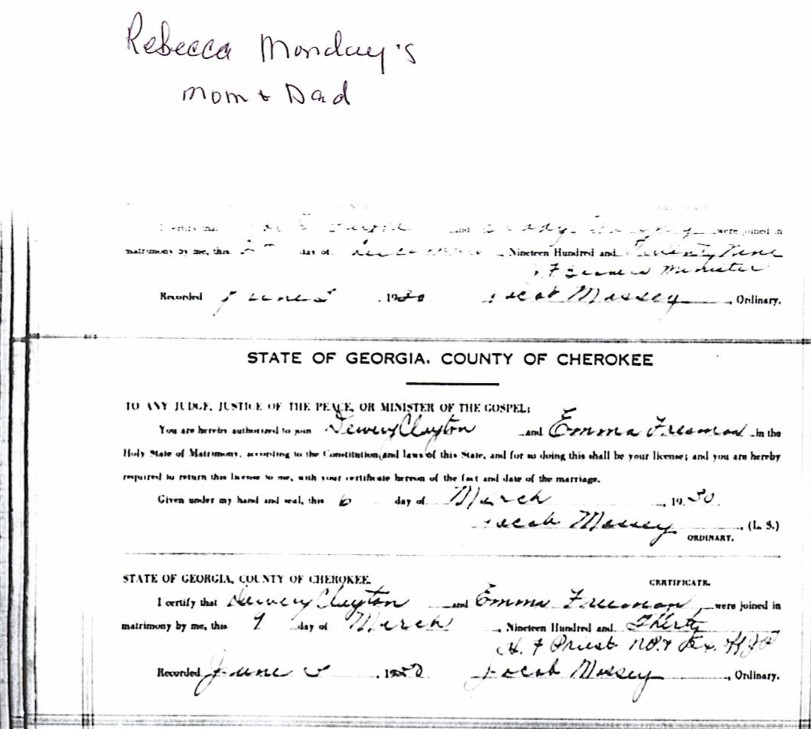 Rebecca Monday's
Mom + Dad
I certify that and were joined in
matrimony by me, this day of Nineteen Hundred and Twenty Nine
Minister
Recorded June 5, 1930 Jacob Massey, Ordinary.
STATE OF GEORGIA, COUNTY OF CHEROKEE
TO ANY JUDGE, JUSTICE OF THE PEACE, OR MINISTER OF THE GOSPEL:
You are hereby authorized to join Dewery Clayton and Emma Freeman in the
Holy State of Matrimony, according to the Constitution and laws of this State, and for so doing this shall be your license; and you are hereby
required to return this license to me, with your certificate hereon of the fact and date of the marriage.
Given under my hand and seal, this 6 day of March, 1930.
Jacob Massey, (L. S.)
ORDINARY.
STATE OF GEORGIA, COUNTY OF CHEROKEE. CERTIFICATE.
I certify that Dewery Clayton and Emma Freeman were joined in
matrimony by me, this 9 day of March, Nineteen Hundred and Thirty
Priest N.P. & Ex.
Recorded June 5, 1930 Jacob Massey, Ordinary.